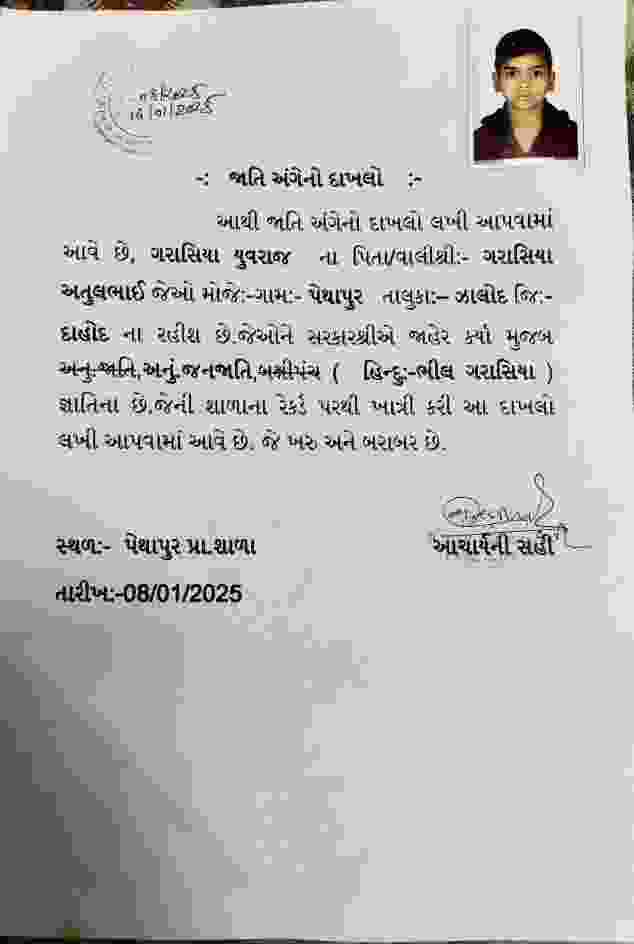 16/01/2025
-: જાતિ અંગેનો દાખલો :-
આથી જાતિ અંગેનો દાખલો લખી આપવામાં
આવે છે, ગરાસિયા યુવરાજ ના પિતા/વાલીશ્રી:- ગરાસિયા
અતુલભાઈ જેઓ મોજે:-ગામ:- પેથાપુર તાલુકા:- ઝાલોદ જિ:-
દાહોદ ના રહીશ છે.જેઓને સરકારશ્રીએ જાહેર કર્યા મુજબ
અનુ-જાતિ,અનું.જનજાતિ,બક્ષીપંચ ( હિન્દુ:-ભીલ ગરાસિયા )
જ્ઞાતિના છે.જેની શાળાના રેકર્ડ પરથી ખાત્રી કરી આ દાખલો
લખી આપવામાં આવે છે. જે ખરુ અને બરાબર છે.
સ્થળ:- પેથાપુર પ્રા.શાળા
આચાર્યની સહી
તારીખ:-08/01/2025